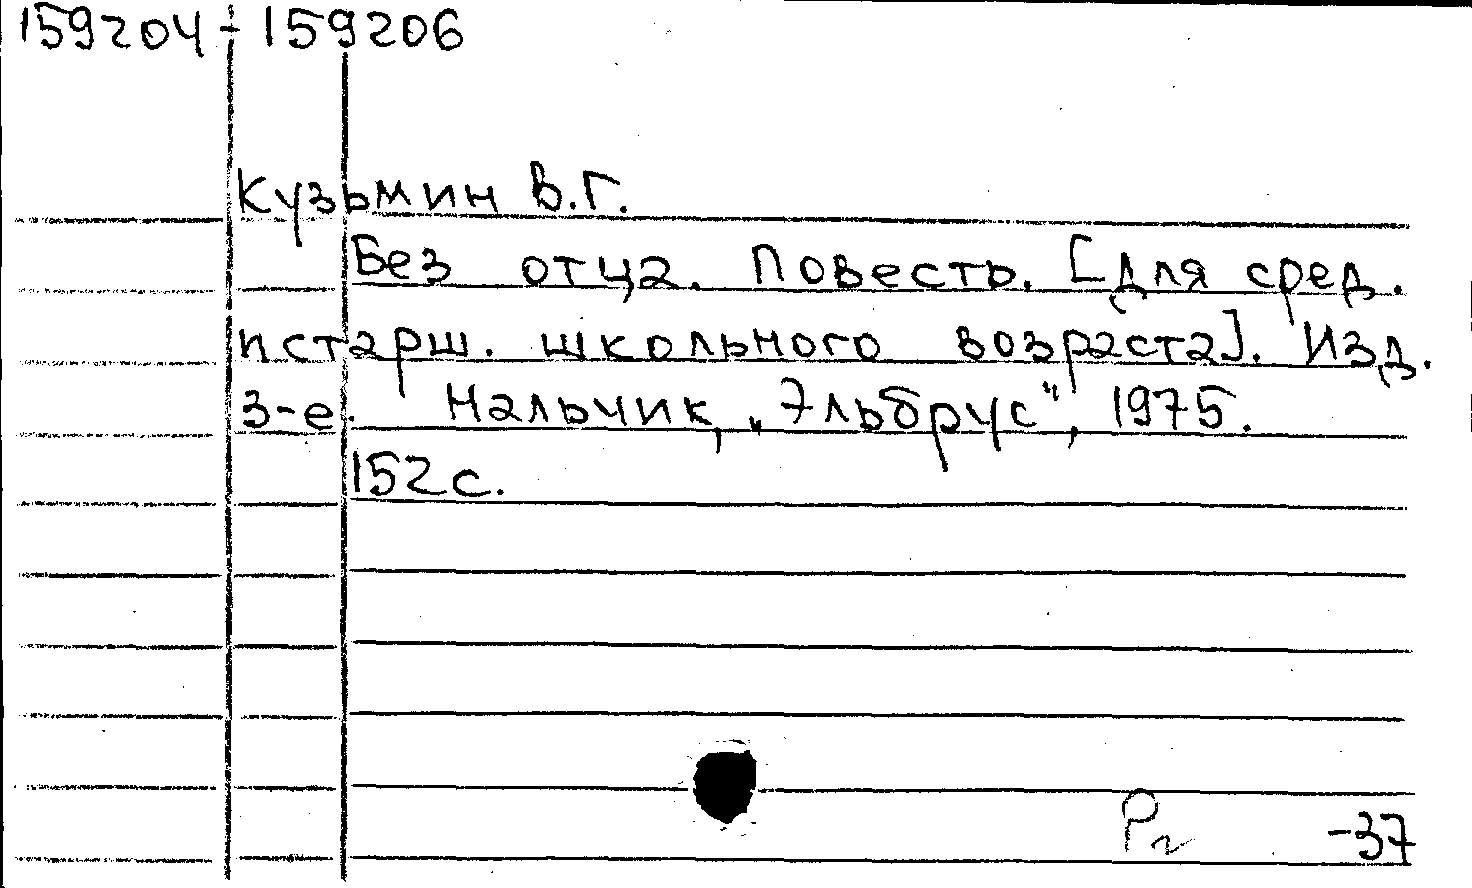 159204-159206
Кузьмин В.Г.
Без отца. Повесть. [Для сред.
и старш. школьного возраста]. Изд.
3-е. Нальчик, „Эльбрус", 1975.
152 с.
-37